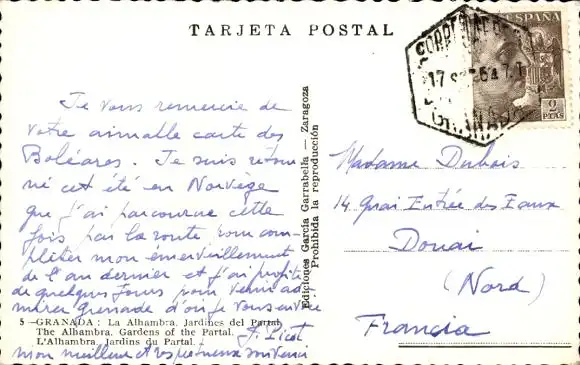 TARJETA POSTAL
CORREO AEREO
17 SE 54 7.T
GRANADA
ESPAÑA
2
PTAS
Je vous remercie de
votre aimable carte des
Baléares. Je suis retour
né cet été en Norvège
que j'ai parcourue cette
fois par la route pour com
pléter mon émerveillement
de l'an dernier et j'ai profité
de quelques jours pour venir ad
mirer Grenade d'où je vous envoie
mon meilleur et respectueux souvenir
J. Picot
Ediciones García Garrabella — Zaragoza
Prohibida la reproducción
Madame Dubois
14 Quai Entrée des Eaux
Douai
(Nord)
Francia
5 — GRANADA: La Alhambra. Jardines del Partal.
The Alhambra. Gardens of the Partal.
L'Alhambra. Jardins du Partal.